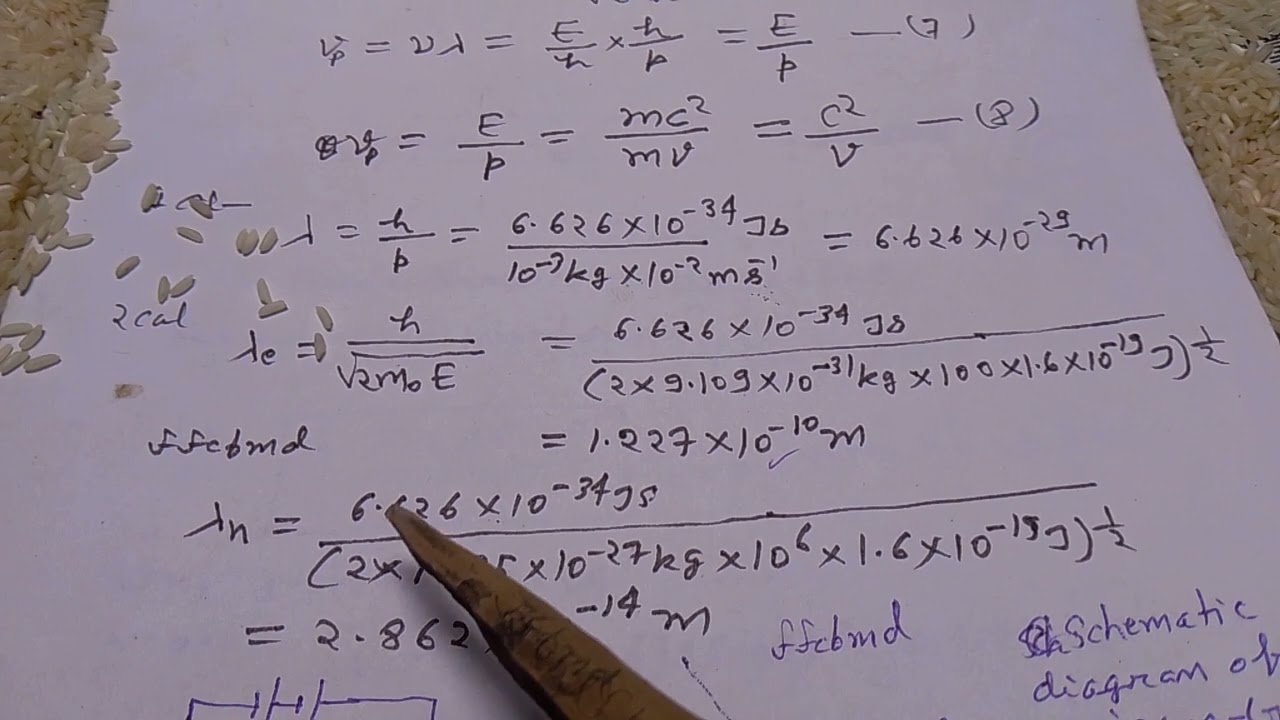 v_p = νλ = E/h × h/p = E/p —(7)
v_p = E/p = mc²/mv = c²/v —(8)
λ = h/p = 6.626×10⁻³⁴ Js / 10⁻³ kg × 10⁻² m s⁻¹ = 6.626×10⁻²⁹ m
2 cal
λe = h/√2m₀E = 6.626×10⁻³⁴ Js / (2×9.109×10⁻³¹ kg×100×1.6×10⁻¹⁹ J)^½
ffcbmd = 1.227×10⁻¹⁰ m
λn = 6.626×10⁻³⁴ Js / (2× ×10⁻²⁷ kg×10⁶×1.6×10⁻¹⁹ J)^½
= 2.862 ⁻¹⁴ m
ffcbmd
Schematic
diagram of